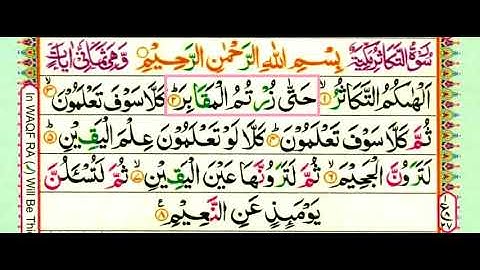 سُوْرَةُ التَّكَاثُرِ مَكِّيَّةٌ بِسْمِ اللهِ الرَّحْمٰنِ الرَّحِيْمِ وَّهِيَ ثَمَانِيْ اٰيَاتٍ
اَلْهٰىكُمُ التَّكَاثُرُ ۙ﴿۱﴾ حَتّٰى زُرْتُمُ الْمَقَابِرَ ؕ﴿۲﴾ كَلَّا سَوْفَ تَعْلَمُوْنَ ۙ﴿۳﴾
ثُمَّ كَلَّا سَوْفَ تَعْلَمُوْنَ ؕ﴿۴﴾ كَلَّا لَوْ تَعْلَمُوْنَ عِلْمَ الْيَقِيْنِ ؕ﴿۵﴾
لَتَرَوُنَّ الْجَحِيْمَ ۙ﴿۶﴾ ثُمَّ لَتَرَوُنَّهَا عَيْنَ الْيَقِيْنِ ۙ﴿۷﴾ ثُمَّ لَتُسْـَٔلُنَّ
يَوْمَىِٕذٍ عَنِ النَّعِيْمِ ﴿۸﴾
In WAQF RA (ر) Will Be Thi